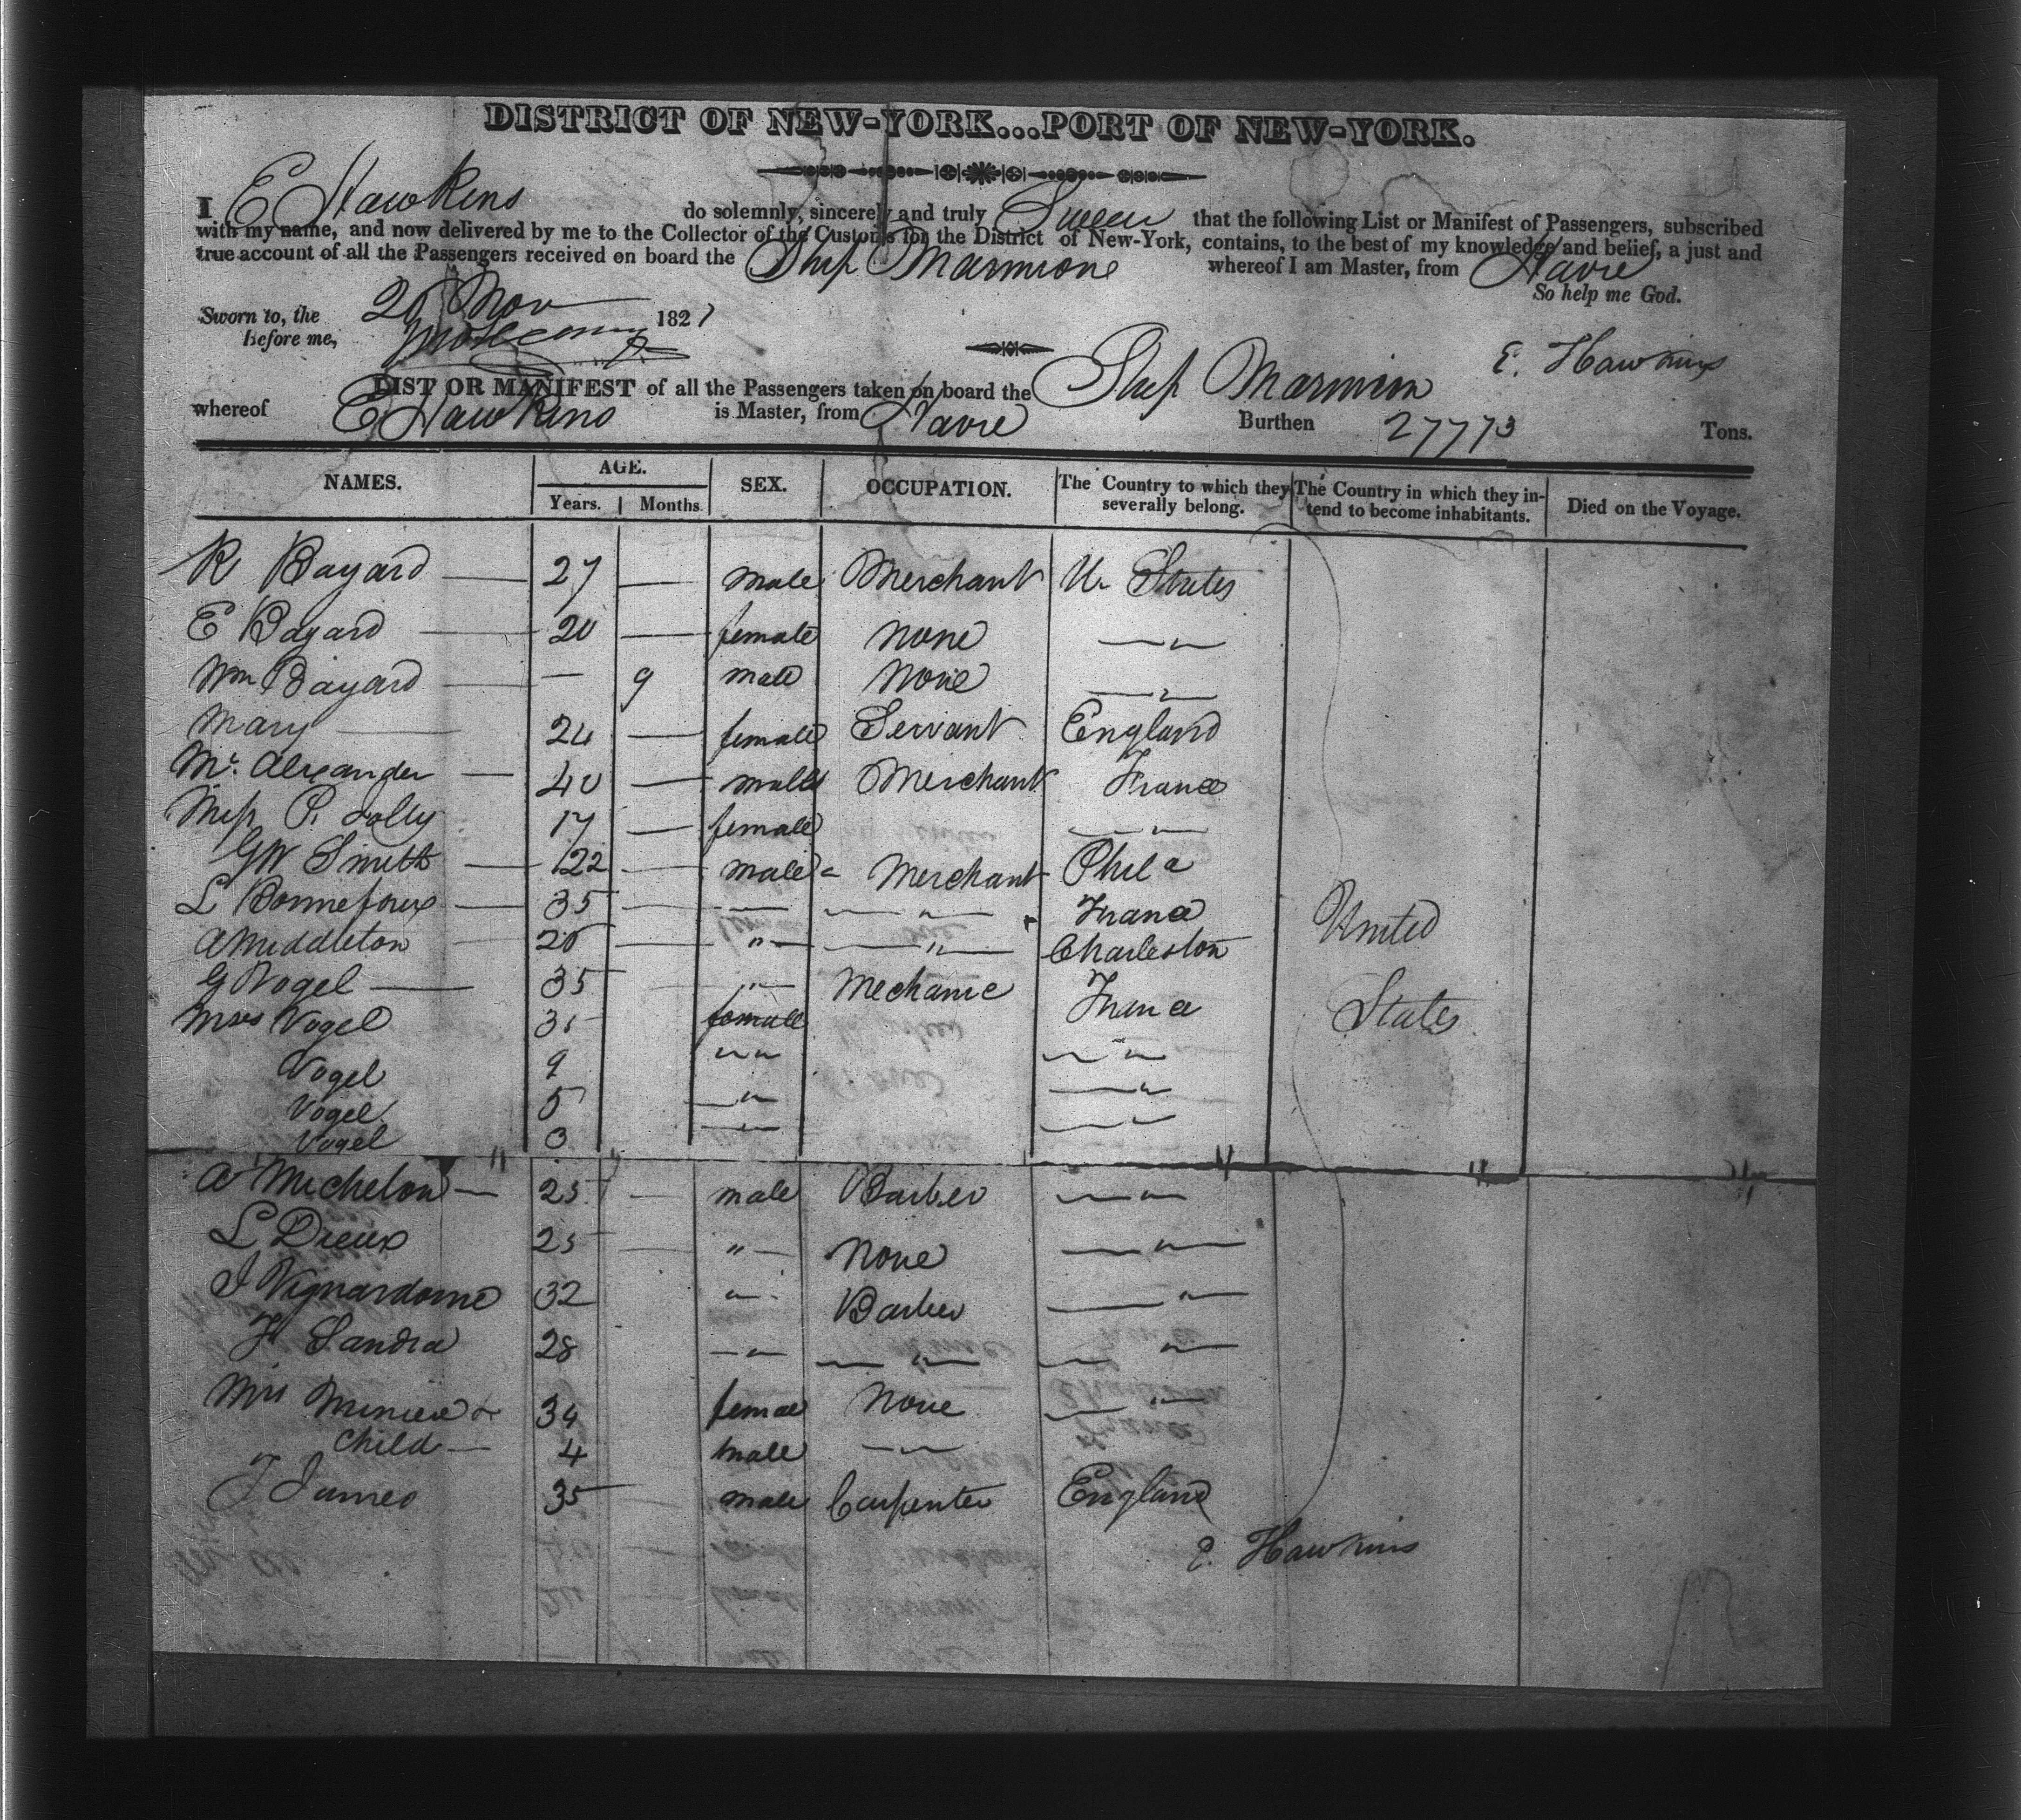 DISTRICT OF NEW-YORK...PORT OF NEW-YORK.
I E Hawkins do solemnly, sincerely and truly Swear that the following List or Manifest of Passengers, subscribed
with my name, and now delivered by me to the Collector of the Customs for the District of New-York, contains, to the best of my knowledge and belief, a just and
true account of all the Passengers received on board the Ship Marmione whereof I am Master, from Havre
So help me God.
Sworn to, the 26 Nov 1827
Before me,
E. Hawkins
LIST OR MANIFEST of all the Passengers taken on board the Ship Marmion
whereof E Hawkins is Master, from Havre Burthen 277 73 Tons.
NAMES. AGE. Years. Months. SEX. OCCUPATION. The Country to which they severally belong. The Country in which they intend to become inhabitants. Died on the Voyage.
R Bayard — 27 — male Merchant U. States
E Bayard — 20 — female none — " —
Wm Bayard — — 9 male none — " —
Mary — 24 — female Servant England
Mr. Alexander — 40 — male Merchant France
Miss P. Lolly 17 — female — " —
GW Smith — 22 — male Merchant Phila
L Bonnefoux — 35 — — — " — France
A Middleton — 26 — " — — " — Charleston
G Vogel — 35 — " — Mechanic France
Mrs Vogel 35 female — " —
Vogel 9 " " — " —
Vogel 5 — " — — " —
Vogel 3 — " — — " —
United
States
A Michelon — 25 — male Barber — " —
L Dreux 25 — " — None — " —
J Vignardonne 32 " — Barber — " —
F Sandra 28 — " — — " — — " —
Mrs Minier & 34 female None — " —
Child — 4 male — " —
J James 35 — male Carpenter England
E. Hawkins